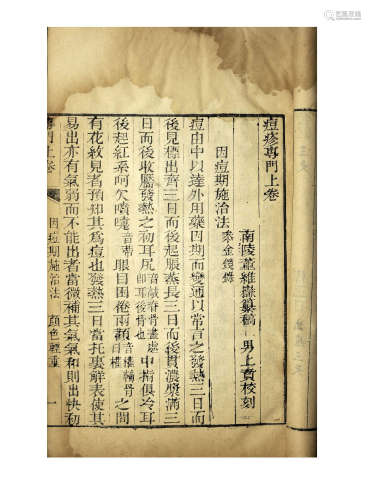 痘疹專門上卷
南陵董維嶽纂稿 男上賁校刻
因痘期施治法
參金鏡錄
痘由中以達外用藥因期而變通以常言之發熱三日而
後見標出齊三日而後起脹蒸長三日而後貫濃漿滿三
日而後收靨發熱之初耳尻 即耳後骨也 中指俱冷耳
後起紅系呵欠噴嚏 音帝 眼目困倦兩顴 之間
有花紋見者預知其為痘也發熱三日當托裏解表使其
易出亦有氣弱而不能出者當微補其氣氣和則出快初
專門上卷 因痘期施治法 顏色輕重 一